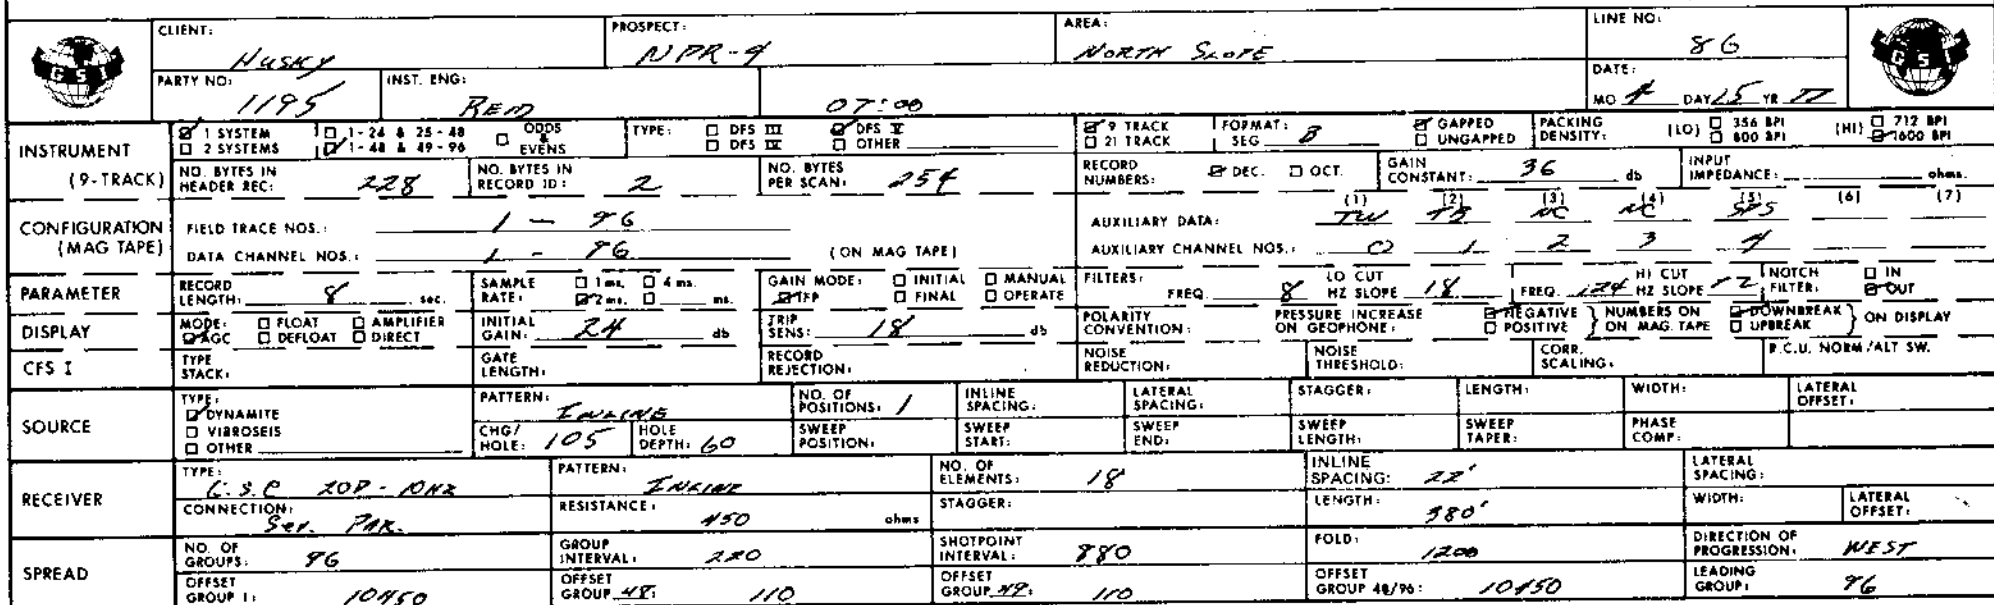 CLIENT: HUSKY PROSPECT: NPR-4 AREA: NORTH SLOPE LINE NO: 86
GSI PARTY NO: 1195 INST. ENG: REID 07:00 DATE: MO 4 DAY 15 YR 77 GSI
INSTRUMENT (9-TRACK)
☑ 1 SYSTEM ☐ 1-24 & 25-48 ☐ ODDS & EVENS TYPE: ☐ DFS III ☑ DFS V ☑ 9 TRACK FORMAT: SEG B ☑ GAPPED PACKING DENSITY: (LO) ☐ 356 BPI (HI) ☐ 712 BPI
☐ 2 SYSTEMS ☑ 1-48 & 49-96 ☐ DFS IV ☐ OTHER ☐ 21 TRACK ☐ UNGAPPED ☐ 800 BPI ☑ 1600 BPI
NO. BYTES IN HEADER REC: 228 NO. BYTES IN RECORD ID: 2 NO. BYTES PER SCAN: 254 RECORD NUMBERS: ☑ DEC. ☐ OCT. GAIN CONSTANT: 36 db INPUT IMPEDANCE: ohms.
CONFIGURATION (MAG TAPE)
(1) (2) (3) (4) (5) (6) (7)
FIELD TRACE NOS.: 1 - 96 AUXILIARY DATA: TW TB NC NC SPS
DATA CHANNEL NOS.: 1 - 96 (ON MAG TAPE) AUXILIARY CHANNEL NOS.: 0 1 2 3 4
PARAMETER RECORD LENGTH: 8 sec. SAMPLE RATE: ☐ 1 ms. ☐ 4 ms. ☑ 2 ms. ☐ ms. GAIN MODE: ☐ INITIAL ☐ MANUAL ☑ IFP ☐ FINAL ☐ OPERATE FILTERS: FREQ. 8 LO CUT HZ SLOPE 18 FREQ. 124 HI CUT HZ SLOPE 72 NOTCH FILTER: ☐ IN ☑ OUT
DISPLAY MODE: ☐ FLOAT ☐ AMPLIFIER ☑ AGC ☐ DEFLOAT ☐ DIRECT INITIAL GAIN: 24 db TRIP SENS: 18 db POLARITY CONVENTION: PRESSURE INCREASE ON GEOPHONE: ☑ NEGATIVE ☐ POSITIVE } NUMBERS ON ON MAG. TAPE ☑ DOWNBREAK ☐ UPBREAK } ON DISPLAY
CFS I TYPE STACK: GATE LENGTH: RECORD REJECTION: NOISE REDUCTION: NOISE THRESHOLD: CORR. SCALING: R.C.U. NORM/ALT SW.
SOURCE TYPE: ☑ DYNAMITE ☐ VIBROSEIS ☐ OTHER
PATTERN: INLINE NO. OF POSITIONS: 1 INLINE SPACING: LATERAL SPACING: STAGGER: LENGTH: WIDTH: LATERAL OFFSET:
CHG/HOLE: 105 HOLE DEPTH: 60 SWEEP POSITION: SWEEP START: SWEEP END: SWEEP LENGTH: SWEEP TAPER: PHASE COMP:
RECEIVER TYPE: G.S.C 20D - 10HZ PATTERN: INLINE NO. OF ELEMENTS: 18 INLINE SPACING: 22' LATERAL SPACING:
CONNECTION: Ser. PAR. RESISTANCE: 450 ohms STAGGER: LENGTH: 380' WIDTH: LATERAL OFFSET:
SPREAD NO. OF GROUPS: 96 GROUP INTERVAL: 220 SHOTPOINT INTERVAL: 880 FOLD: 1200 DIRECTION OF PROGRESSION: WEST
OFFSET GROUP 1: 10450 OFFSET GROUP 48: 110 OFFSET GROUP 49: 110 OFFSET GROUP 48/96: 10450 LEADING GROUP: 96